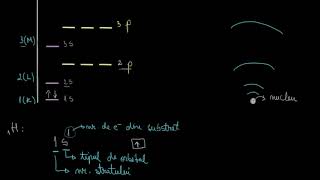 3 p
3(M) 3s
2 p
2(L) 2s
1(K) 1s
nucleu
₁H:
1s¹
nr. de e⁻ din substrat
tipul de orbital
nr. stratului